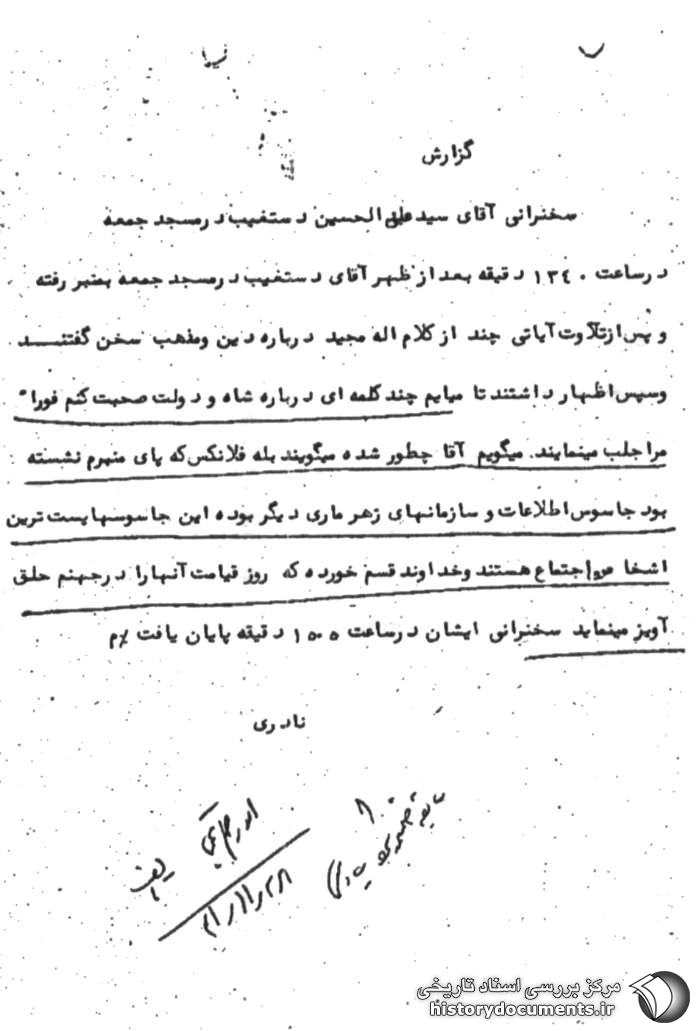 گزارش
سخنرانی آقای سید عبدالحسین دستغیب در مسجد جمعه
در ساعت ۱۳۴۰ دقیقه بعد از ظهر آقای دستغیب در مسجد جمعه بمنبر رفته
و پس از تلاوت آیاتی چند از کلام اله مجید درباره دین و مذهب سخن گفتنـــد
و سپس اظهار داشتند تا میایم چند کلمه ای درباره شاه و دولت صحبت کنم فورا"
مرا جلب مینمایند. میگویم آقا چطور شده میگویند بله فلانکس که پای منبرم نشسته
بود جاسوس اطلاعات و سازمانهای زهر ماری دیگر بوده این جاسوسها پست ترین
اشخاص اجتماع هستند و خداوند قسم خورده که روز قیامت آنها را در جهنم حلق
آویز مینماید سخنرانی ایشان در ساعت ۱۵۰۰ دقیقه پایان یافت %م
نادری
مرکز بررسی اسناد تاریخی
historydocuments.ir